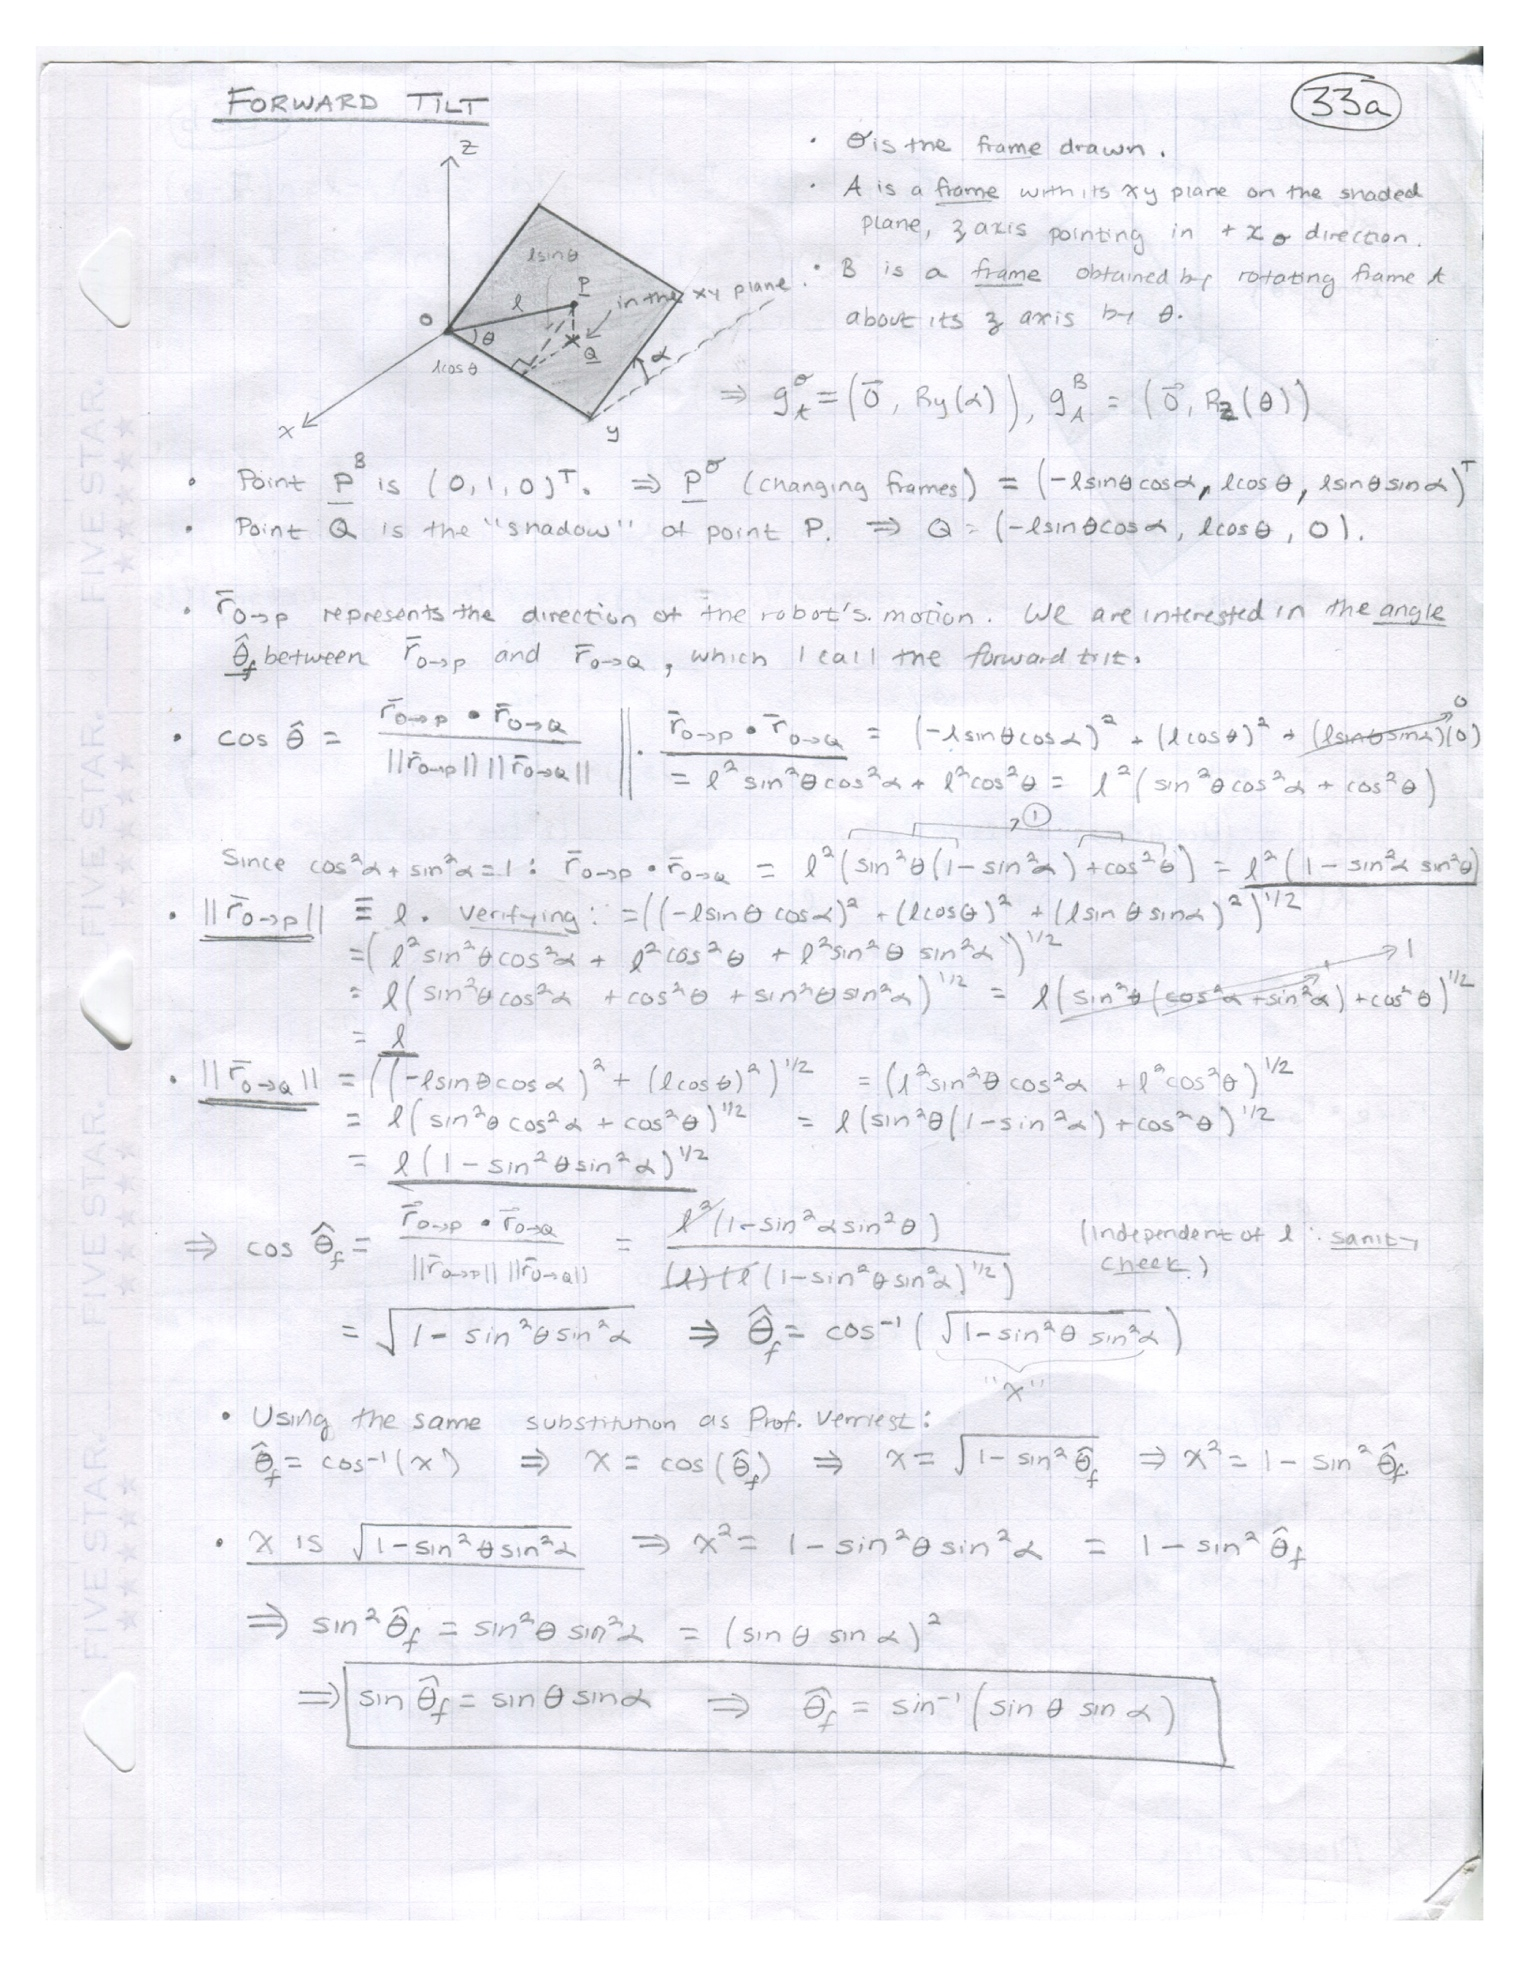 FORWARD TILT
33a
z
lsinθ
P
l
in the xy plane.
O
θ
Q
lcosθ
α
x
y
• σ is the frame drawn.
• A is a frame with its xy plane on the shaded
plane, z axis pointing in + z σ direction.
• B is a frame obtained by rotating frame A
about its z axis by θ.
⇒ g_A^σ = (0⃗, Ry(α)), g_A^B = (0⃗, Rz(θ))
• Point P^B is (0,1,0)^T. ⇒ P^σ (changing frames) = (-lsinθcosα, lcosθ, lsinθsinα)^T
• Point Q is the "shadow" of point P. ⇒ Q = (-lsinθcosα, lcosθ, 0).
• r̄_{O→P} represents the direction of the robot's motion. We are interested in the angle
θ̂_f between r̄_{O→P} and r̄_{O→Q}, which I call the forward tilt.
• cos θ̂ = r̄_{O→P} • r̄_{O→Q} / ||r̄_{O→P}|| ||r̄_{O→Q}|| || • r̄_{O→P} • r̄_{O→Q} = (-lsinθcosα)² + (lcosθ)² + (lsinθsinα)(0) 0
= l² sin²θcos²α + l²cos²θ = l²(sin²θcos²α + cos²θ)
1
Since cos²α + sin²α = 1: r̄_{O→P} • r̄_{O→Q} = l²(sin²θ(1-sin²α) + cos²θ) = l²(1 - sin²α sin²θ)
• ||r̄_{O→P}|| ≡ l. Verifying: = ((-lsinθ cosα)² + (lcosθ)² + (lsinθ sinα)²)^{1/2}
= (l²sin²θcos²α + l²cos²θ + l²sin²θ sin²α)^{1/2}
= l(sin²θcos²α + cos²θ + sin²θsin²α)^{1/2} = l(sin²θ(cos²α + sin²α) + cos²θ)^{1/2} 1
= l
• ||r̄_{O→Q}|| = ((-lsinθcosα)² + (lcosθ)²)^{1/2} = (l²sin²θcos²α + l²cos²θ)^{1/2}
= l(sin²θcos²α + cos²θ)^{1/2} = l(sin²θ(1-sin²α) + cos²θ)^{1/2}
= l(1 - sin²θsin²α)^{1/2}
⇒ cos θ̂_f = r̄_{O→P} • r̄_{O→Q} / ||r̄_{O→P}|| ||r̄_{O→Q}|| = l²(1-sin²αsin²θ) / (l)(l(1-sin²θsin²α)^{1/2}) (Independent of l: sanity
check.)
= √(1 - sin²θsin²α) ⇒ θ̂_f = cos⁻¹(√(1-sin²θ sin²α))
"x"
• Using the same substitution as Prof. Verriest:
θ̂_f = cos⁻¹(x) ⇒ x = cos(θ̂_f) ⇒ x = √(1-sin²θ̂_f) ⇒ x² = 1 - sin²θ̂_f.
• x is √(1-sin²θsin²α) ⇒ x² = 1 - sin²θsin²α = 1 - sin²θ̂_f
⇒ sin²θ̂_f = sin²θ sin²α = (sinθ sinα)²
⇒ sinθ̂_f = sinθ sinα ⇒ θ̂_f = sin⁻¹(sinθ sinα)
FIVE STAR.
FIVE STAR.
FIVE STAR.
FIVE STAR.